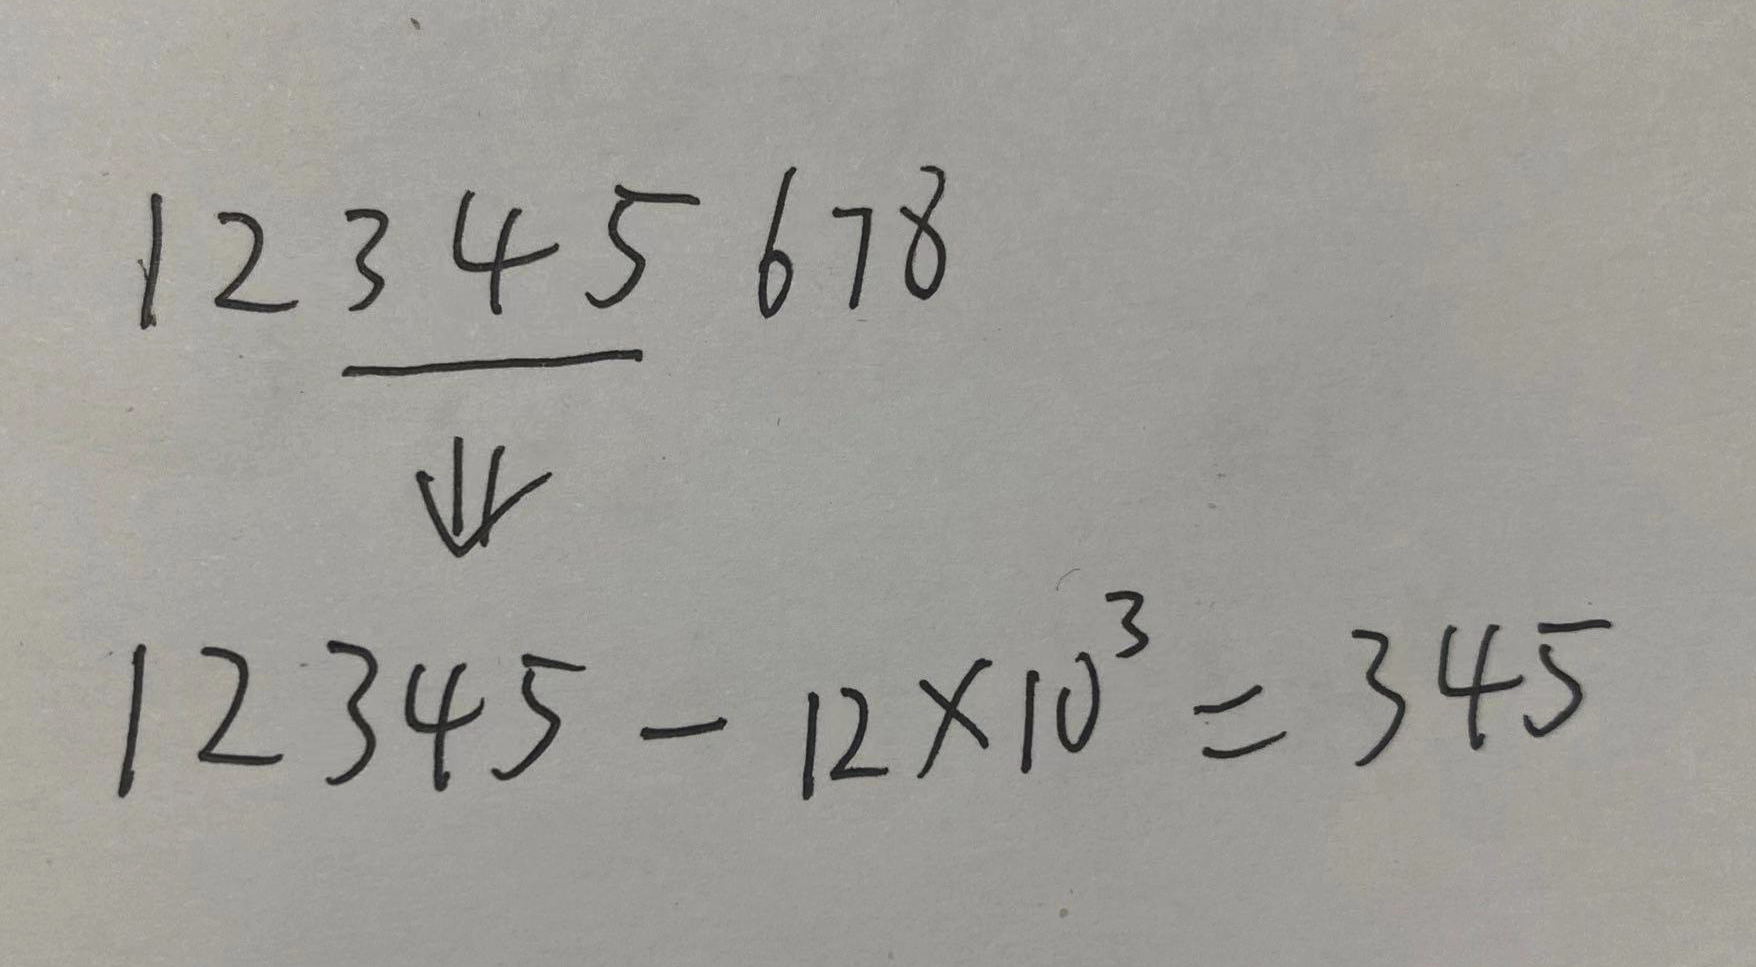 12345678
12345 - 12×10³ = 345